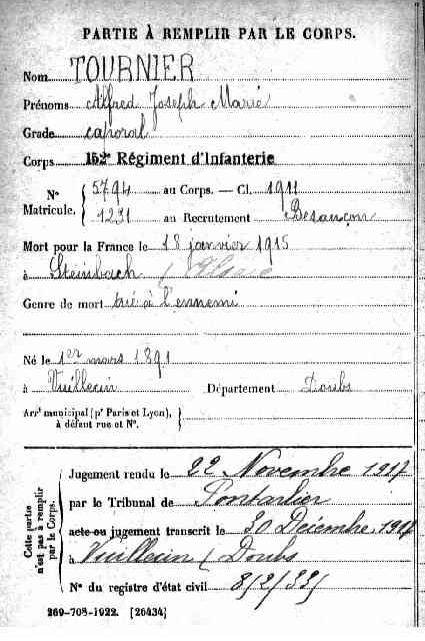 PARTIE À REMPLIR PAR LE CORPS.
Nom TOURNIER
Prénoms Alfred Joseph Marie
Grade caporal
Corps 152e Régiment d'Infanterie
N° Matricule. { 5794 au Corps. — Cl. 1911
1231 au Recrutement Besançon
Mort pour la France le 18 janvier 1915
à Steinbach / Alsace
Genre de mort tué à l'ennemi
Né le 1er mars 1891
à Vuillecin Département Doubs
Arrt municipal (pr Paris et Lyon),
à défaut rue et N°.
Cette partie n'est pas à remplir par le Corps.
Jugement rendu le 22 Novembre 1917
par le Tribunal de Pontarlier
acte ou jugement transcrit le 30 Décembre 1917
à Vuillecin / Doubs
N° du registre d'état civil
269-708-1922. [26434]